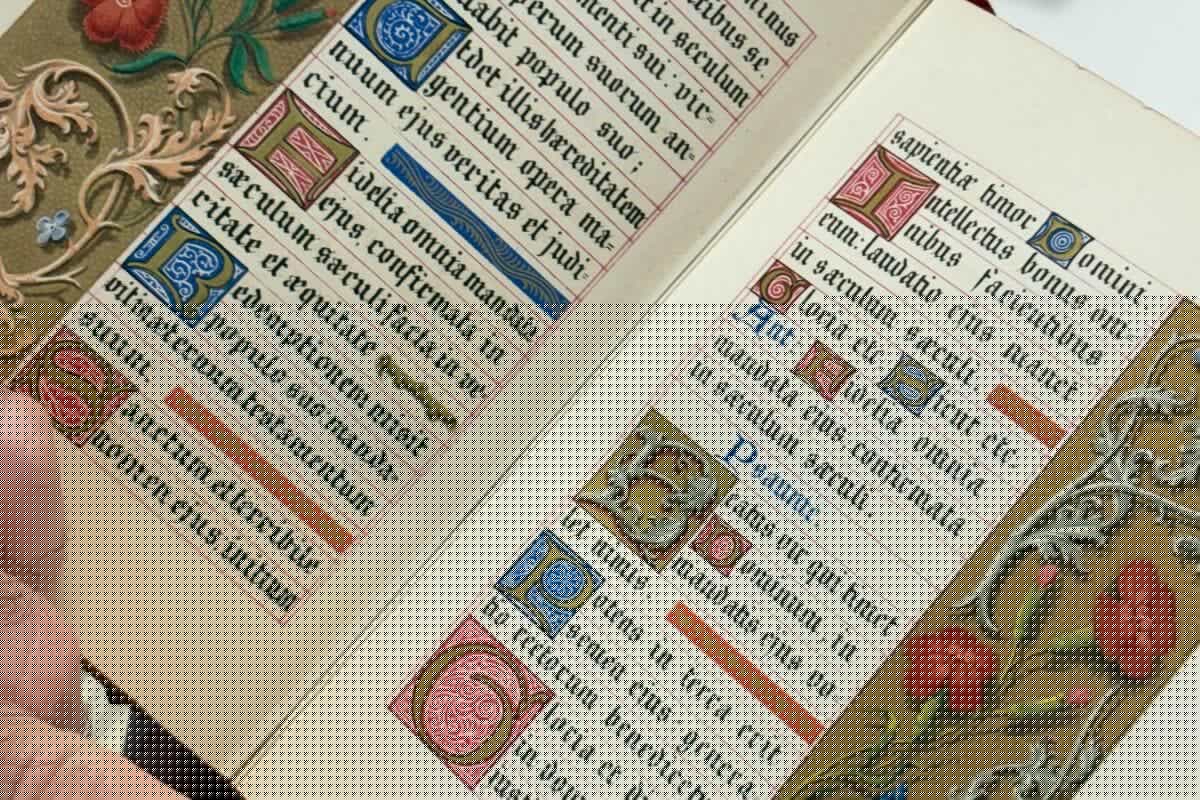 minus
tibus se.
t in seculum
menti sui: vir=
perum suorum an=
labit populo suo;
Ut det illis hæreditatem
gentium opera ma=
nuum ejus veritas et judi=
cium.
Fidelia omnia mandata
ejus, confirmata in
sæculum sæculi facta in ve
ritate et æquitate
Redemptionem misit
populo suo manda=
vit in æternum testamentum
suum.
Sanctum et terribile
nomen ejus, initium
sapientiæ timor Domini
Intellectus bonus om=
nibus facientibus
eum: laudatio ejus manet
in sæculum sæculi.
Gloria etc. Sicut etc.
Ant. Fidelia omnia
mandata ejus confirmata
in sæculum sæculi.
Psaume.
Beatus vir qui timet
Dominum, in
mandatis ejus vo
let nimis.
Potens in terra erit
semen ejus, genera
tio rectorum benedicet
Gloria et
in dom